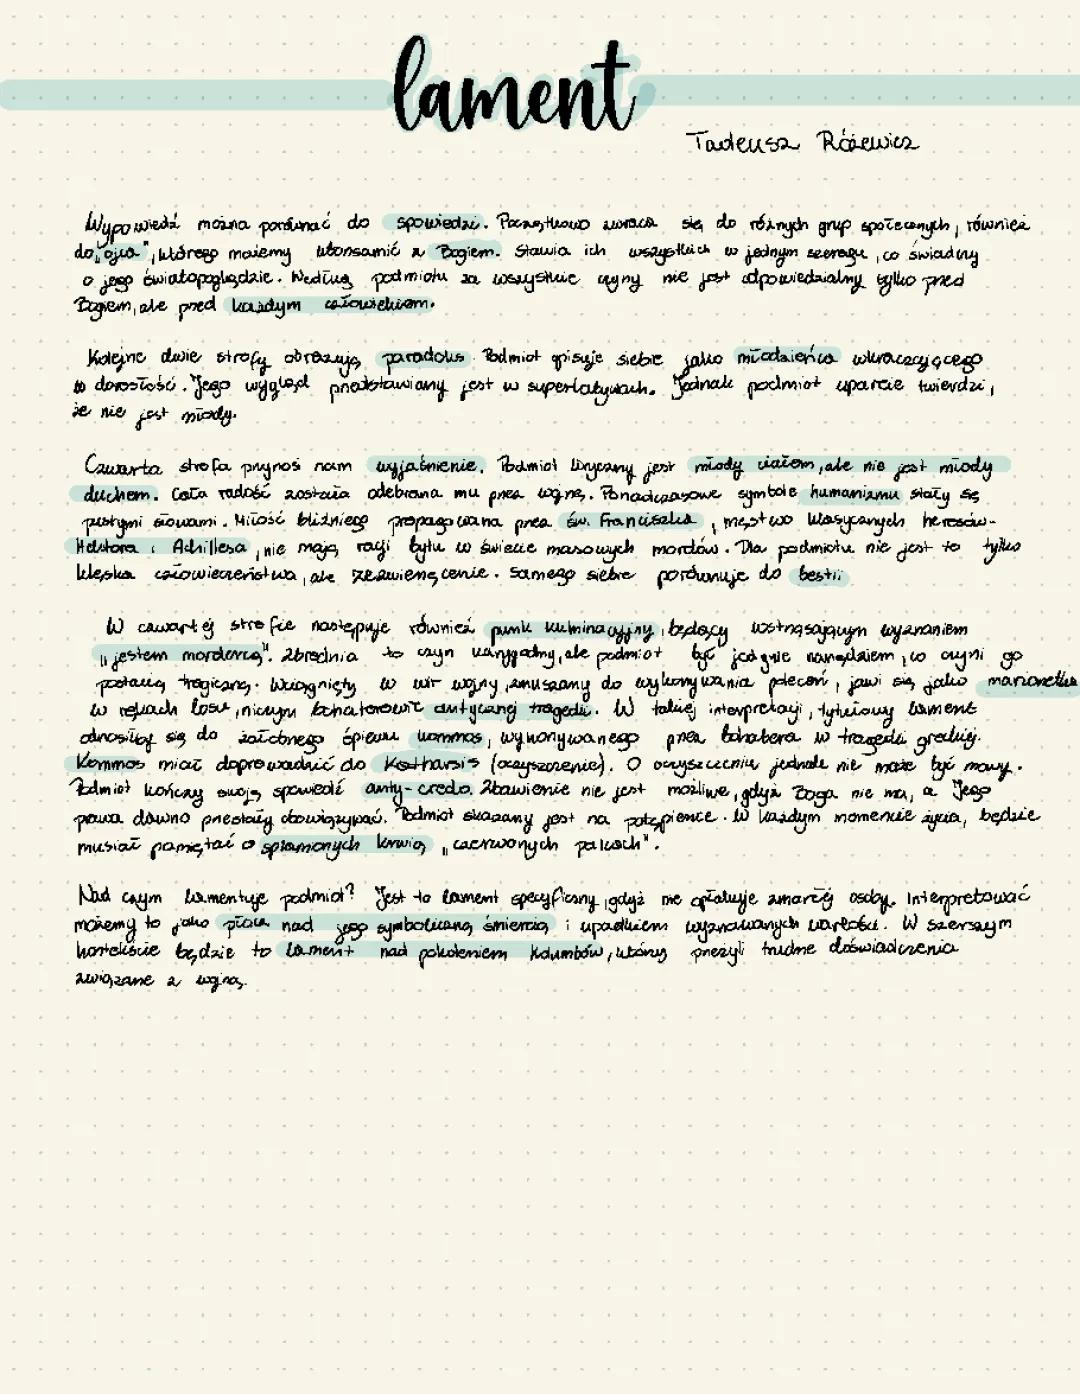 lament
Tadeusz Różewicz
Wypowiedź można porównać do spowiedzi. Początkowo zwraca się do różnych grup społecznych, również
do „ojca", którego możemy utożsamić z Bogiem. Stawia ich wszystkich w jednym szeregu, co świadczy
o jego światopoglądzie. Według podmiotu za wszystkie czyny nie jest odpowiedzialny tylko przed
Bogiem, ale przed każdym człowiekiem.
Kolejne dwie strofy obrazują paradoks. Podmiot opisuje siebie jako młodzieńca wkraczającego
w dorosłość. Jego wygląd przedstawiany jest w superlatywach. Jednak podmiot uparcie twierdzi,
że nie jest młody.
Czwarta strofa przynosi nam wyjaśnienie. Podmiot liryczny jest młody ciałem, ale nie jest młody
duchem. Cała radość została odebrana mu przez wojnę. Ponadczasowe symbole humanizmu stały się
pustymi słowami. Miłość bliźniego propagowana przez św. Franciszka, męstwo klasycznych herosów-
Hektora i Achillesa, nie mają racji bytu w świecie masowych mordów. Dla podmiotu nie jest to tylko
klęska człowieczeństwa, ale zezwierzęcenie. Samego siebie porównuje do bestii
W czwartej strofie następuje również punk kulminacyjny, będący wstrząsającym wyznaniem
„jestem mordercą". Zbrodnia to czyn karygodny, ale podmiot był jedynie narzędziem, co czyni go
postacią tragiczną. Wciągnięty w wir wojny, zmuszany do wykonywania poleceń, jawi się jako marionetka
w rękach losu, niczym bohaterowie antycznej tragedii. W takiej interpretacji, tytułowy lament
odnosiłby się do żałobnego śpiewu kommos, wykonywanego przez bohatera w tragedii greckiej.
Kommos miał doprowadzić do Katharsis (oczyszczenie). O oczyszczeniu jednak nie może być mowy.
Podmiot kończy swoją spowiedź anty-credo. Zbawienie nie jest możliwe, gdyż Boga nie ma, a Jego
prawa dawno przestały obowiązywać. Podmiot skazany jest na potępience. W każdym momencie życia, będzie
musiał pamiętać o splamionych krwią „czerwonych palcach".
Nad czym lamentuje podmiot? Jest to lament specyficzny, gdyż nie opłakuje zmarłej osoby. Interpretować
możemy to jako płacz nad jego symboliczną śmiercią i upadkiem wyznawanych wartości. W szerszym
kontekście będzie to lament nad pokoleniem Kolumbów, którzy przeżyli trudne doświadczenia
związane z wojną.